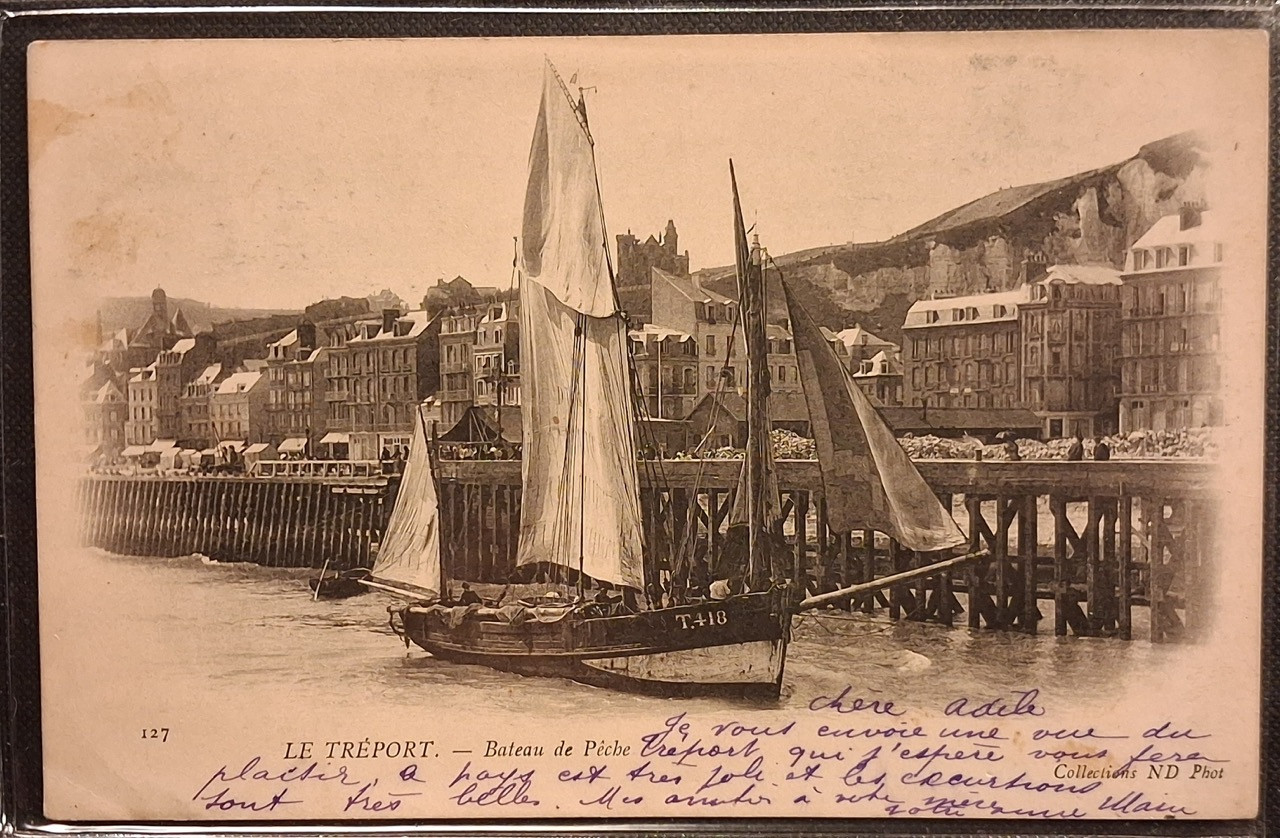 T.418
chère adèle
Je vous envoie une vue du
127
LE TRÉPORT. — Bateau de Pêche
tréport, qui j'espère vous fera
plaisir, a pays est tres joli et les excurtions
Collections ND Phot
sont très belles. Mes amitiés à votre mère
votre amie